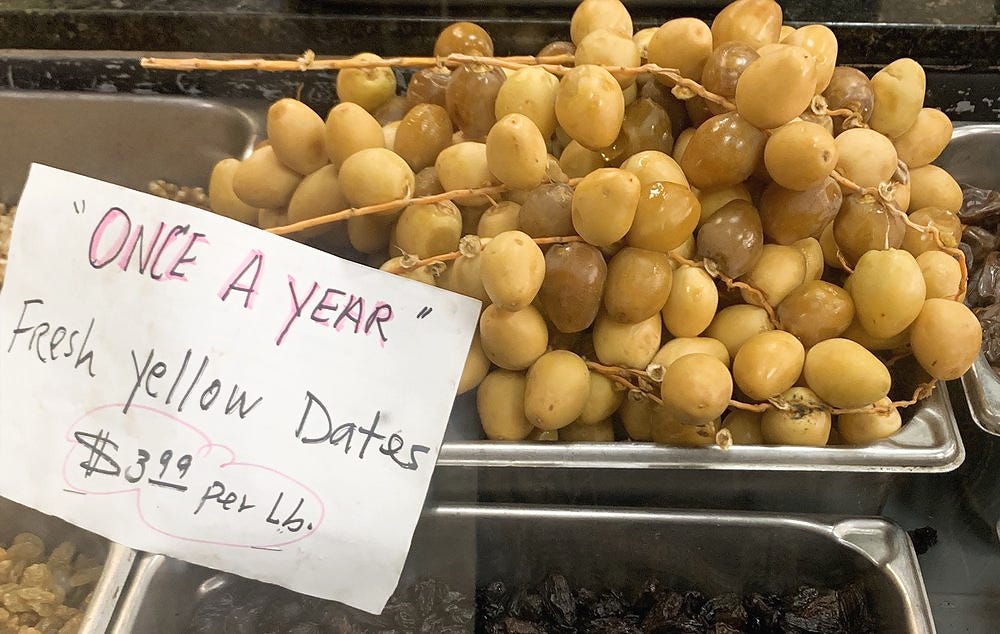 "ONCE A YEAR"
Fresh Yellow Dates
$3.99 per Lb.